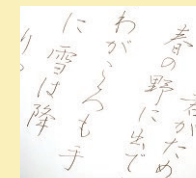 君がため
春の野に出で
わがころも手
に雪は降
りつ